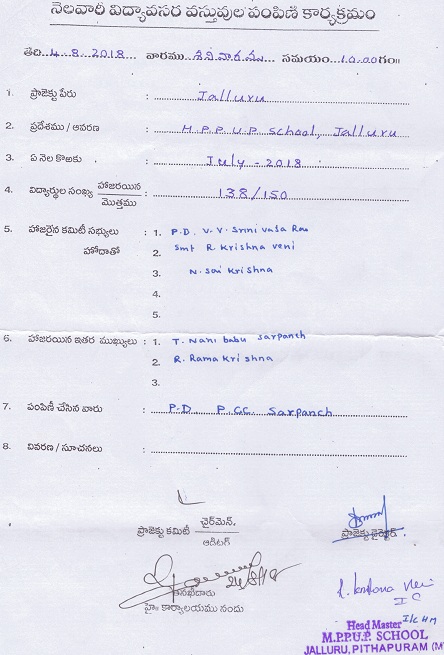 నెలవారీ విద్యావసర వస్తువుల పంపిణీ కార్యక్రమం
తేది 4.8.2018 వారము శనివారము సమయం 10.00గం॥
1. ప్రాజెక్టు పేరు : Jalluru
2. ప్రదేశము / ఆవరణ : M.P.P.U.P School, Jalluru
3. ఏ నెల కొఱకు : July - 2018
4. విద్యార్థుల సంఖ్య హాజరయిన/మొత్తము : 138/150
5. హాజరైన కమిటీ సభ్యులు : 1. P.D. V.V. Srinivasa Rao
హోదాతో 2. Smt R. Krishna veni
3. N. Sai Krishna
4.
5.
6. హాజరయిన ఇతర ముఖ్యులు : 1. T. Nani babu Sarpanch
2. R. Rama Krishna
3.
7. పంపిణీ చేసిన వారు : P.D. P.CC. Sarpanch
8. వివరణ / సూచనలు :
ప్రాజెక్టు కమిటీ ఛైర్మెన్./ఆడిటర్
ప్రాజెక్టు డైరెక్టర్
తనిఖీదారు
హై కార్యాలయము నందు
I/C HM
Head Master
M.P.P.U.P. SCHOOL
JALLURU, PITHAPURAM (M